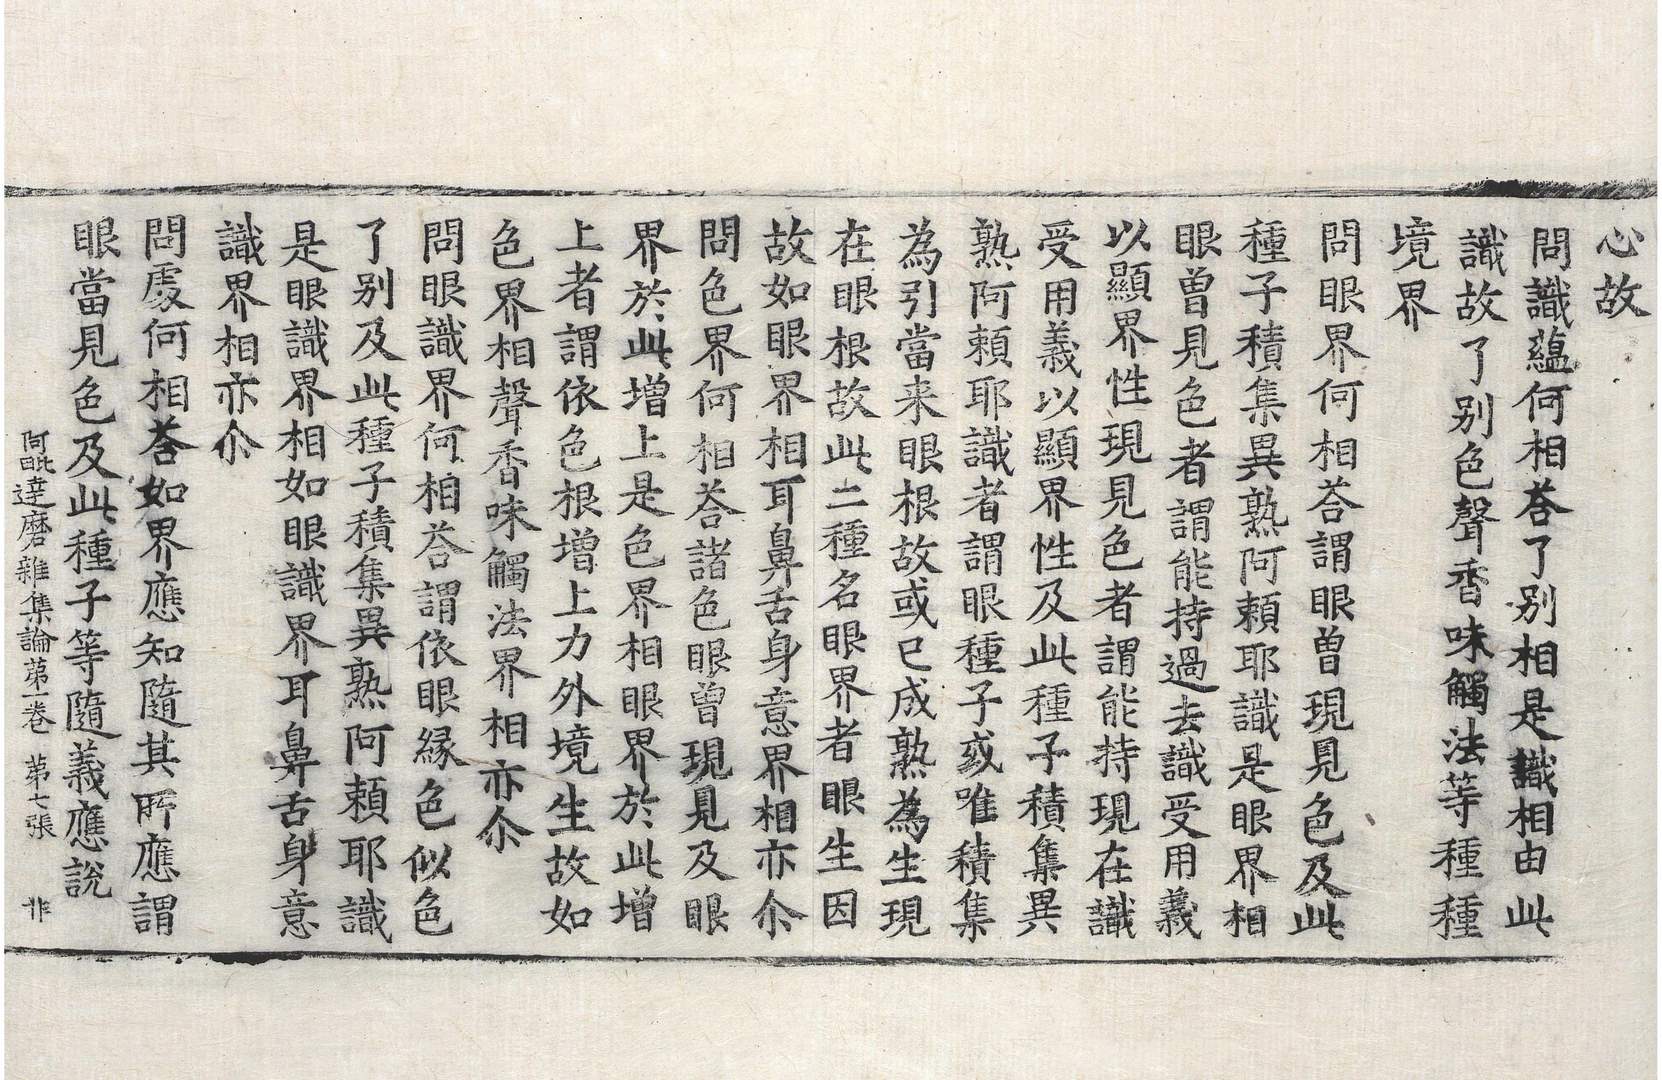 心故
問識蘊何相荅了別相是識相由此
識故了別色聲香味觸法等種種
境界
問眼界何相荅謂眼曾現見色及此
種子積集異熟阿頼耶識是眼界相
眼曾見色者謂能持過去識受用義
以顯界性現見色者謂能持現在識
受用義以顯界性及此種子積集異
熟阿頼耶識者謂眼種子或唯積集
為引當来眼根故或已成熟為生現
在眼根故此二種名眼界者眼生因
故如眼界相耳鼻舌身意界相亦尒
問色界何相荅諸色眼曾現見及眼
界於此增上是色界相眼界於此增
上者謂依色根增上力外境生故如
色界相聲香味觸法界相亦尒
問眼識界何相荅謂依眼緣色似色
了別及此種子積集異熟阿頼耶識
是眼識界相如眼識界耳鼻舌身意
識界相亦尒
問處何相荅如界應知隨其所應謂
眼當見色及此種子等隨義應說
阿毗達磨雜集論苐一卷 苐七張 非